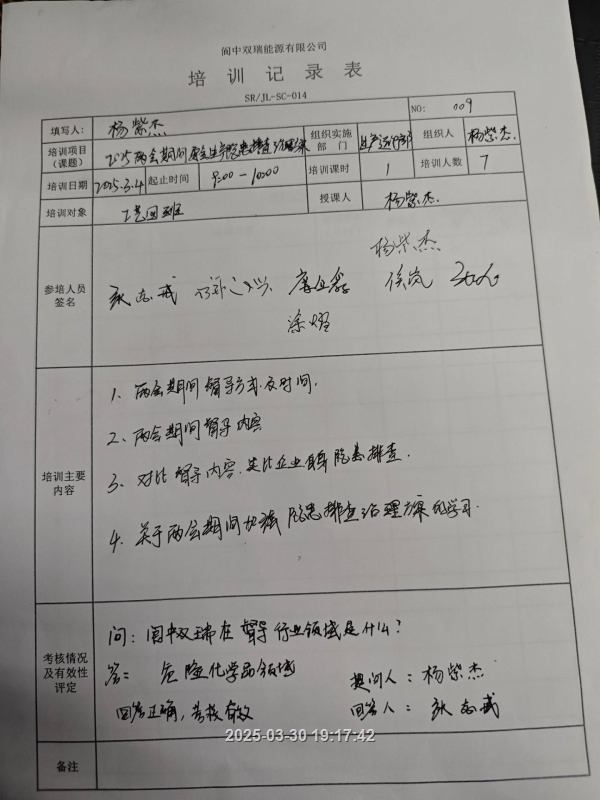 阆中双瑞能源有限公司
培训记录表
SR/JL-SC-014
NO: 009
填写人: 杨紫杰
培训项目（课题） 2025两会期间安全生产隐患排查治理方案 组织实施部门 生产运行部 组织人 杨紫杰.
培训日期 2025.3.4 起止时间 9:00－10:00 培训课时 1 培训人数 7
培训对象 工艺四班 授课人 杨紫杰.
杨紫杰
参培人员签名 侯岚
培训主要内容
1. 两会期间督导方式及时间.
2、两会期间督导内容
3、对比督导内容.类比企业自身隐患排查.
4. 关于两会期间加强隐患排查治理方案的学习.
考核情况及有效性评定
问: 阆中双瑞在督导行业领域是什么?
答: 危险化学品领域
提问人: 杨紫杰
回答正确, 考核有效 回答人: 张志武
备注
2025-03-30 19:17:42